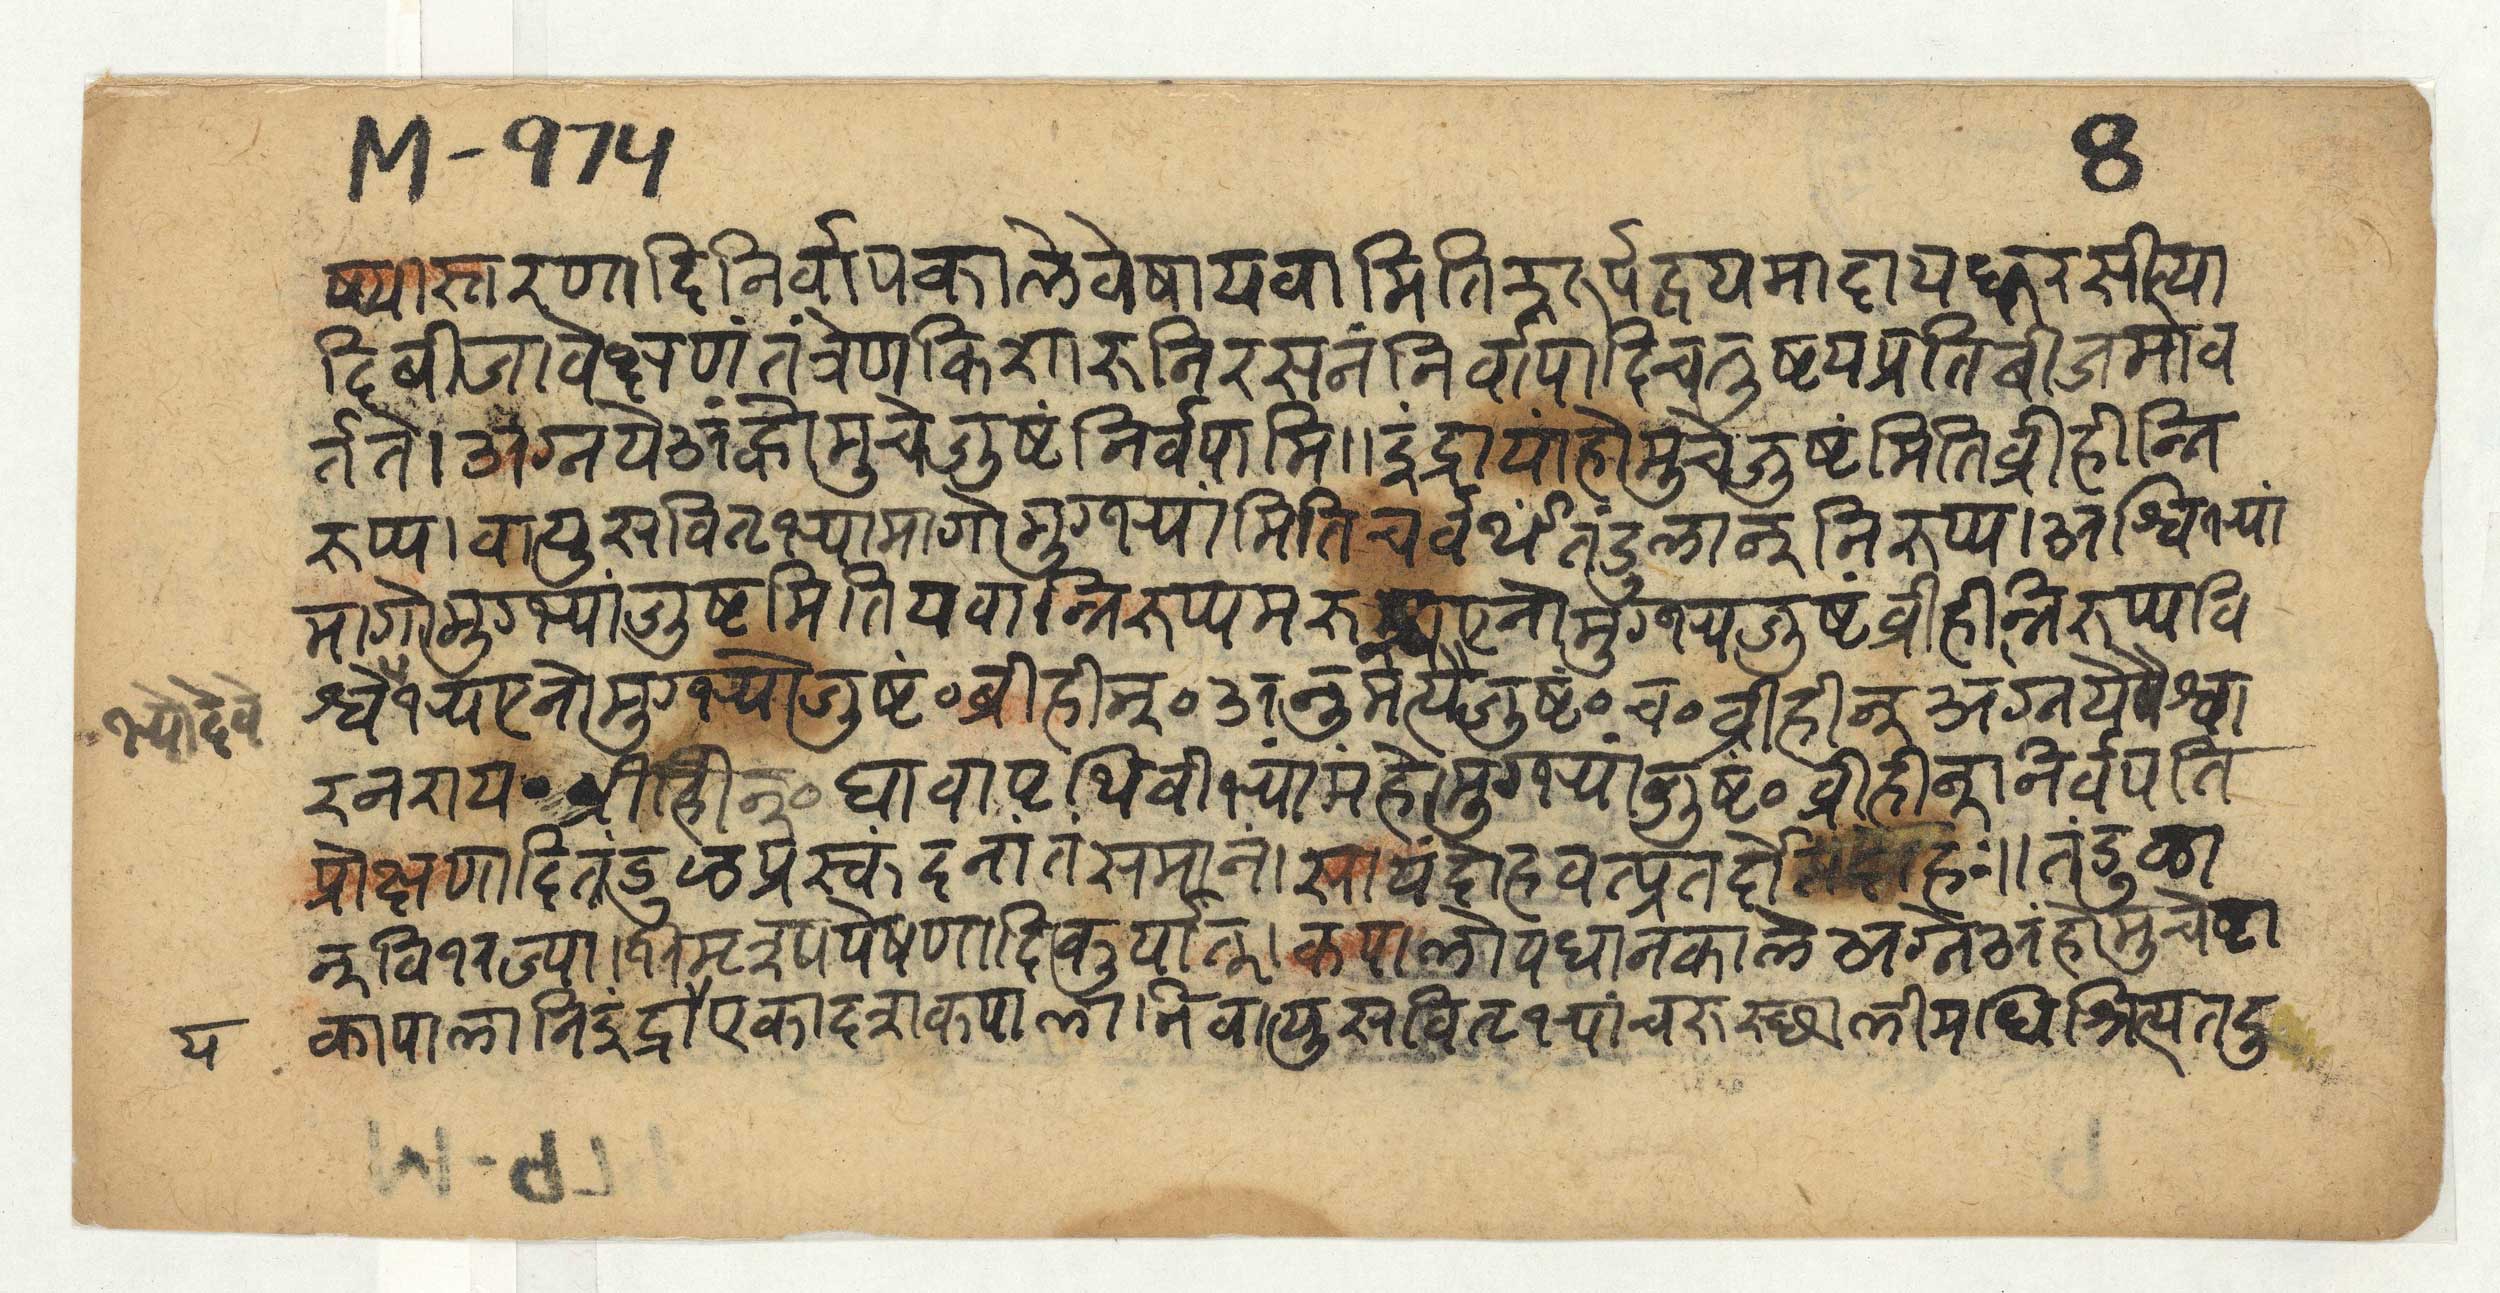 M-974
8
ष्यास्तरणादिनिर्वापकालेवेषायवामितिशूर्पद्वयमादायधूरसीत्या
दिबीजावेक्षणंतंत्रेणकिशारूनिरसनंनिर्वापादिचतुष्टयप्रतिबीजमाव
र्तते।अग्नयेअंहोमुचेजुष्टंनिर्वपामि॥इंद्रायांहोमुचेजुष्टंमितिव्रीहीन्नि
रूप्य।वायुसवितृभ्यामागोमुग्भ्यांमितिचर्वर्थंतंडुलान्निरूप्य।अश्विभ्यां
मागोमुग्भ्यांजुष्टमितियवान्निरूप्यमरुद्भ्यएनोमुग्भ्यजुष्टंव्रीहीन्निरूप्यवि
भ्योदेवे
श्वेभ्यएनोमुग्भ्योजुष्टं॰व्रीहीन्॰अनुमत्यैजुष्टं॰च॰व्रीहीन्अग्नयेवैश्वा
रनराय॰व्रीहीन्॰द्यावापृथिवीभ्यांमंहोमुग्भ्यांजुष्टं॰व्रीहीन्निर्वपति
प्रोक्षणादितंडुळप्रस्कंदनांतंसमानं।सायंदोहवत्प्रातर्दोहः॥तंडुळा
न्विभज्य।पेषणादिकुर्यात्।कपालोपधानकालेअग्नेअंहोमुचेष्टा
य
कापालानिइंद्राएकादशकपालानिवायुसवितृभ्यांचरुस्थालीमधिश्रित्यतदु